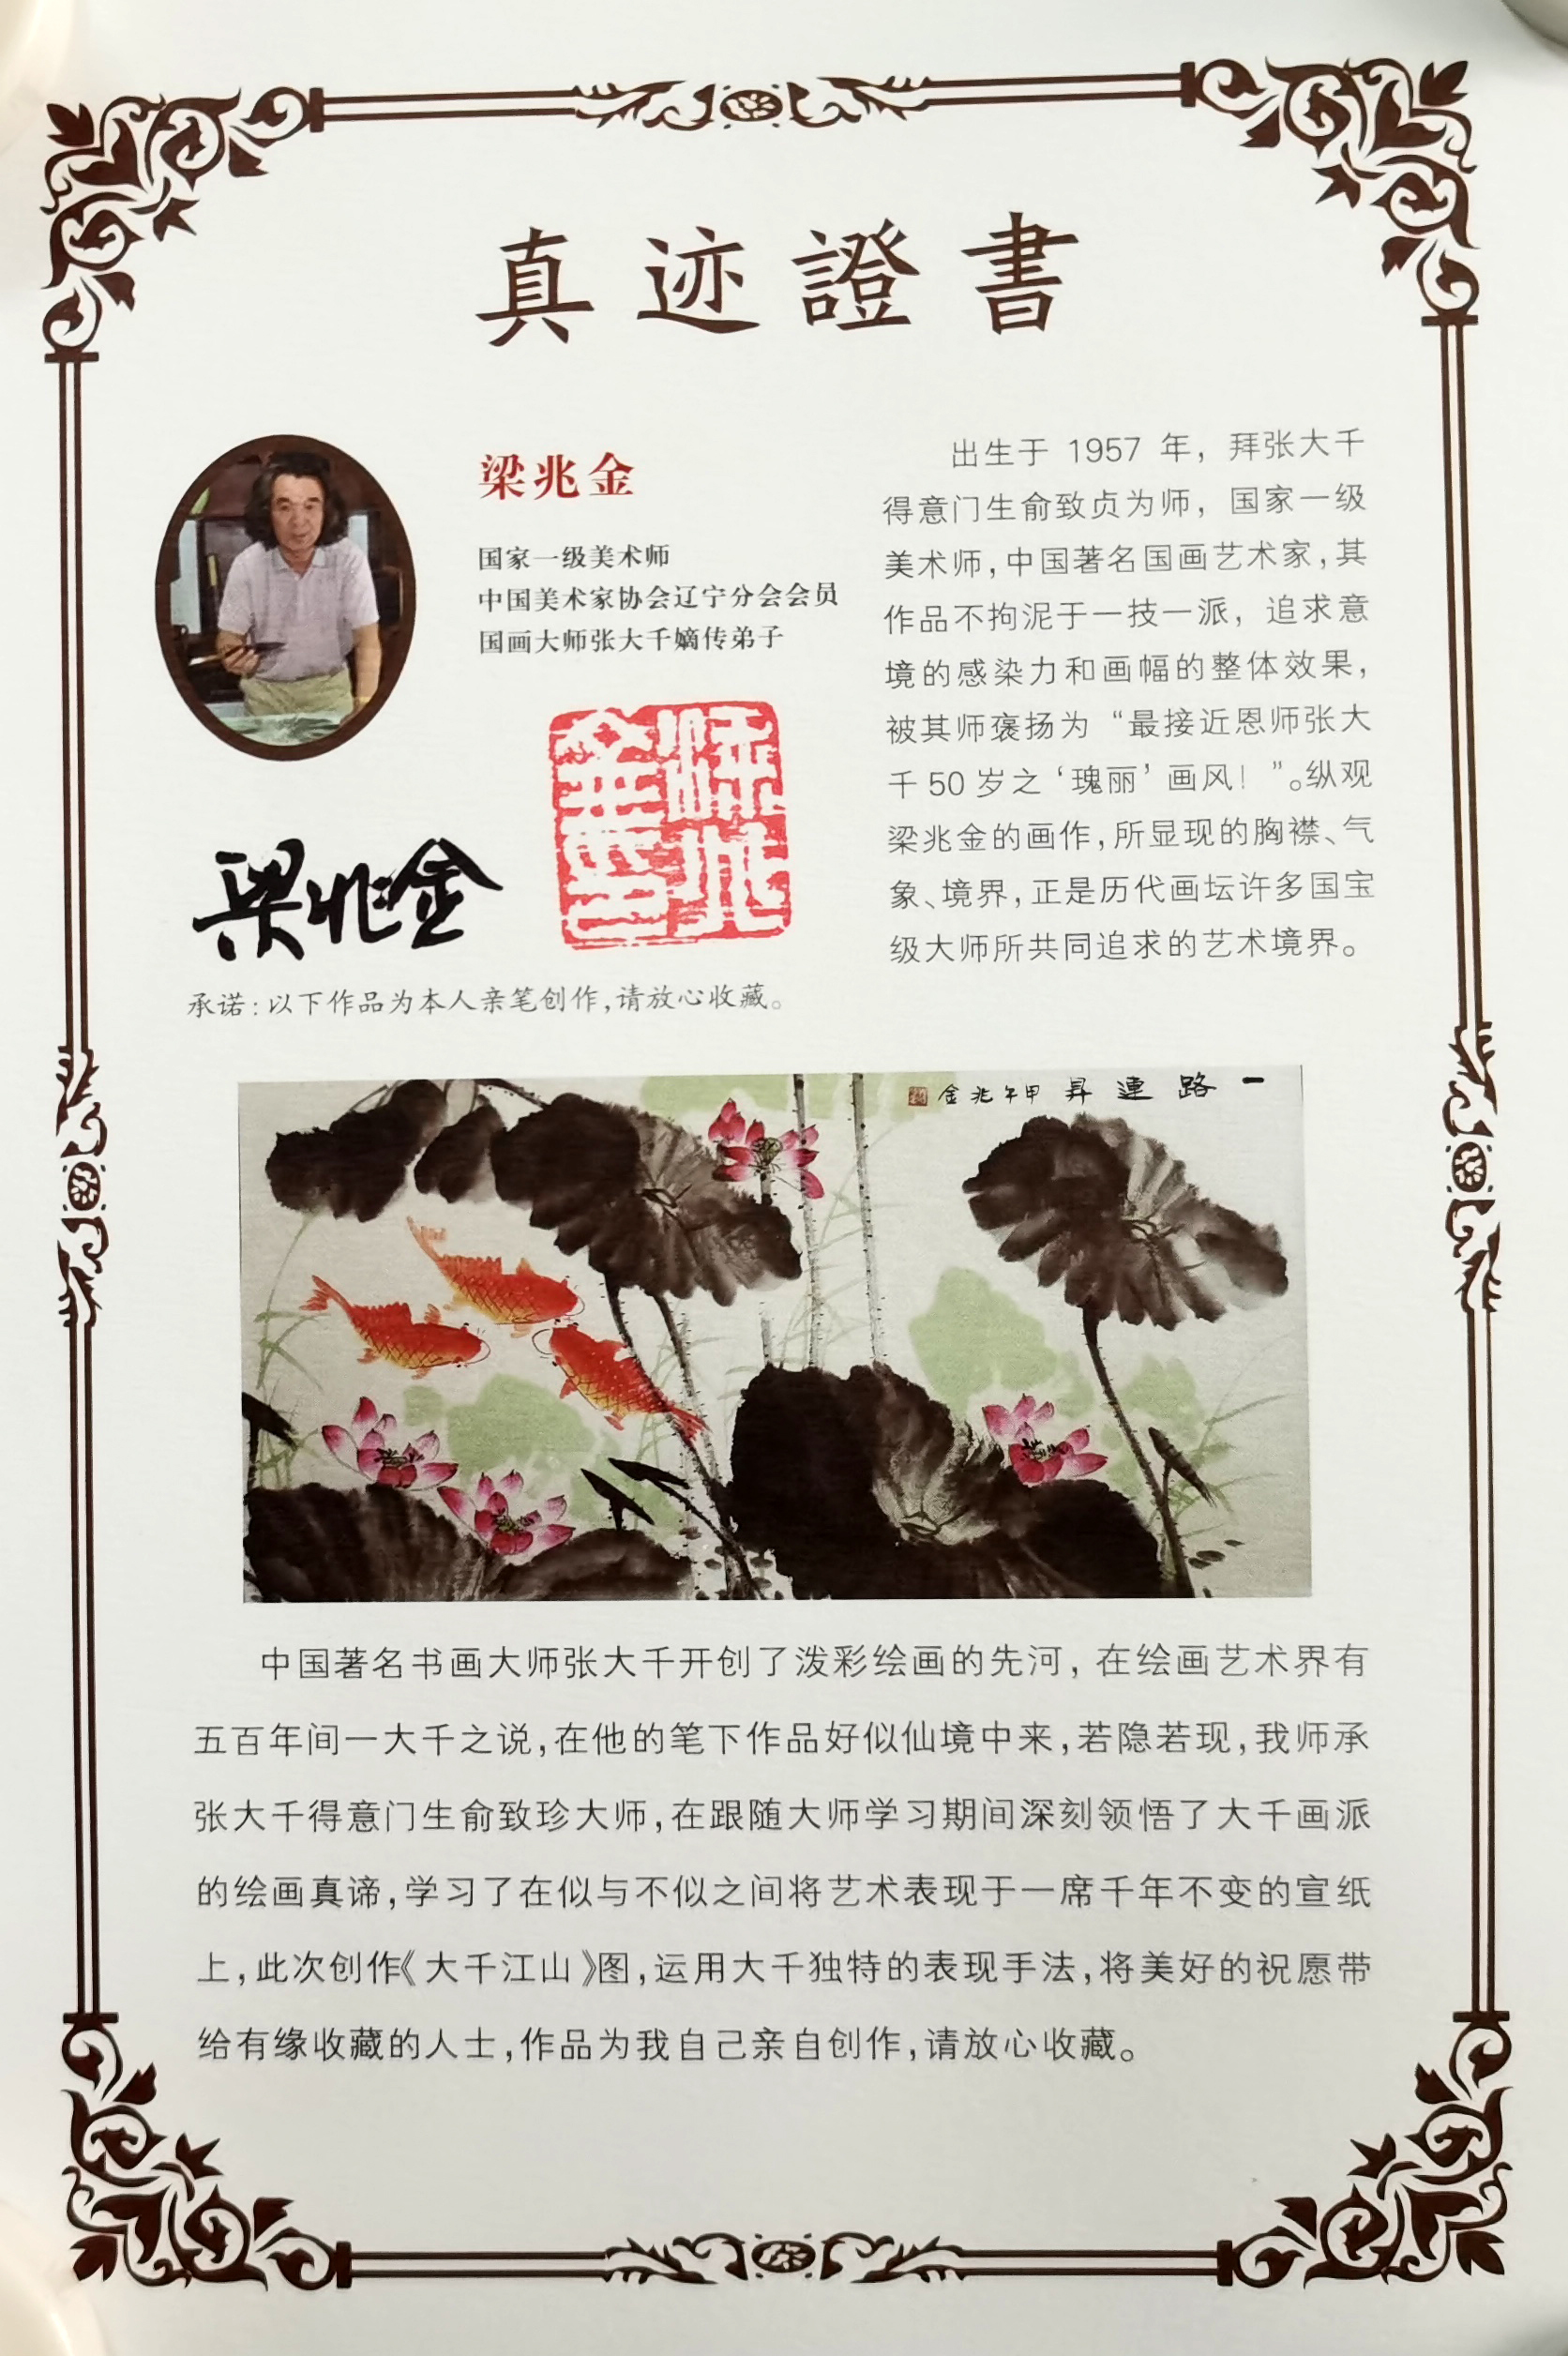 真迹證書
梁兆金
国家一级美术师
中国美术家协会辽宁分会会员
国画大师张大千嫡传弟子
梁兆金
承诺:以下作品为本人亲笔创作,请放心收藏。
出生于 1957 年，拜张大千
得意门生俞致贞为师，国家一级
美术师,中国著名国画艺术家,其
作品不拘泥于一技一派，追求意
境的感染力和画幅的整体效果，
被其师褒扬为“最接近恩师张大
千50岁之‘瑰丽’画风！”。纵观
梁兆金的画作,所显现的胸襟、气
象、境界,正是历代画坛许多国宝
级大师所共同追求的艺术境界。
一路連昇 甲午兆金
中国著名书画大师张大千开创了泼彩绘画的先河，在绘画艺术界有
五百年间一大千之说,在他的笔下作品好似仙境中来,若隐若现,我师承
张大千得意门生俞致珍大师,在跟随大师学习期间深刻领悟了大千画派
的绘画真谛,学习了在似与不似之间将艺术表现于一席千年不变的宣纸
上,此次创作《大千江山》图,运用大千独特的表现手法,将美好的祝愿带
给有缘收藏的人士,作品为我自己亲自创作,请放心收藏。